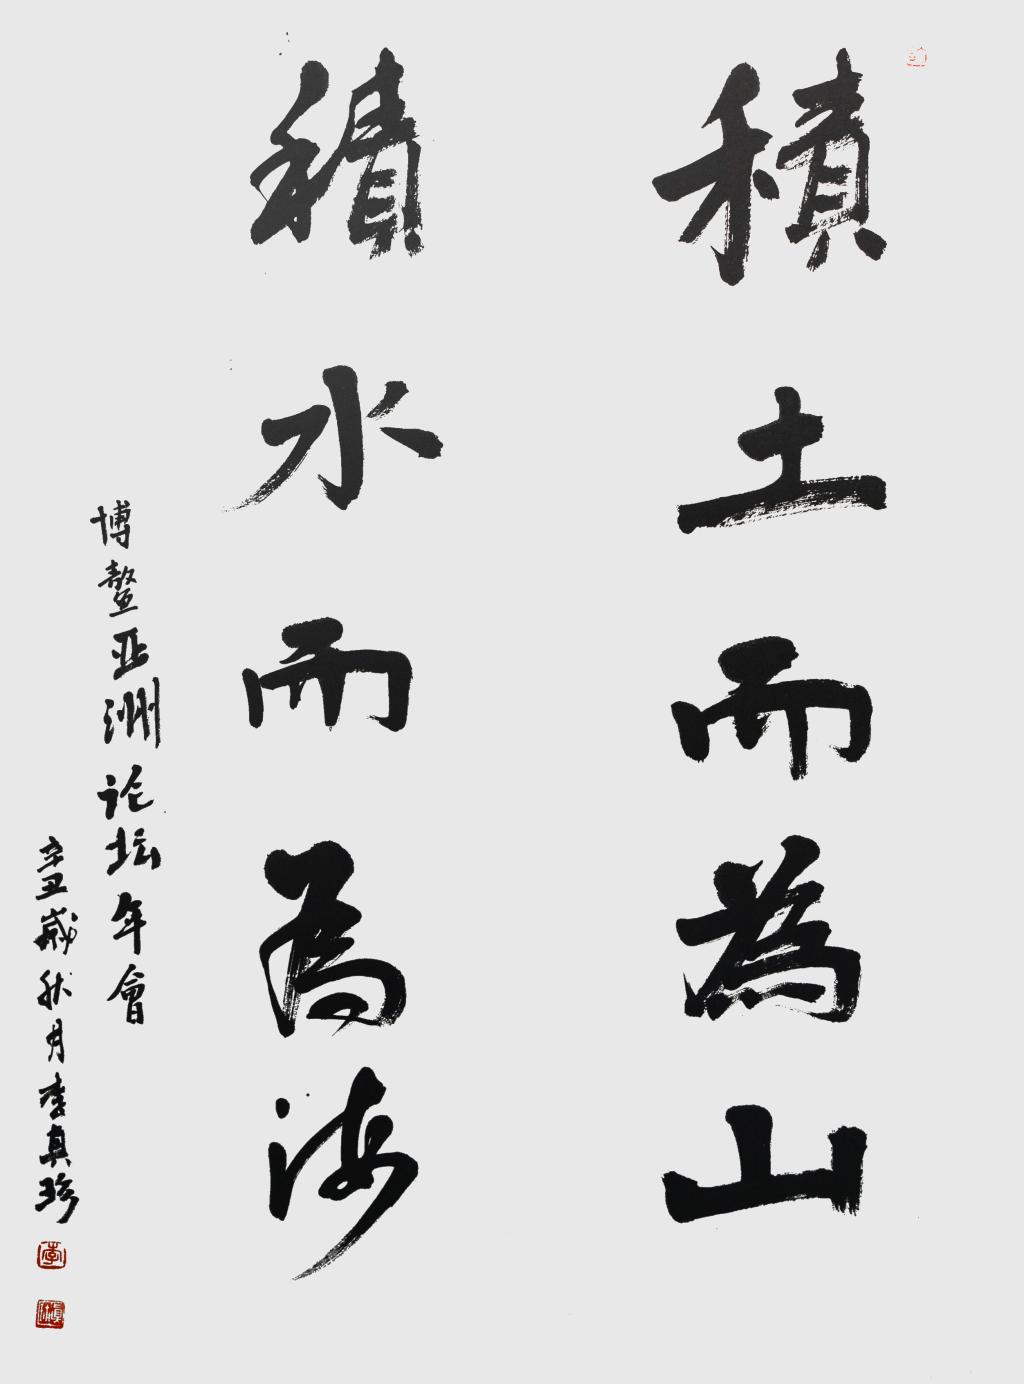 積土而為山
積水而為海
博鳌亚洲论坛年會
辛丑歲秋月李真珍